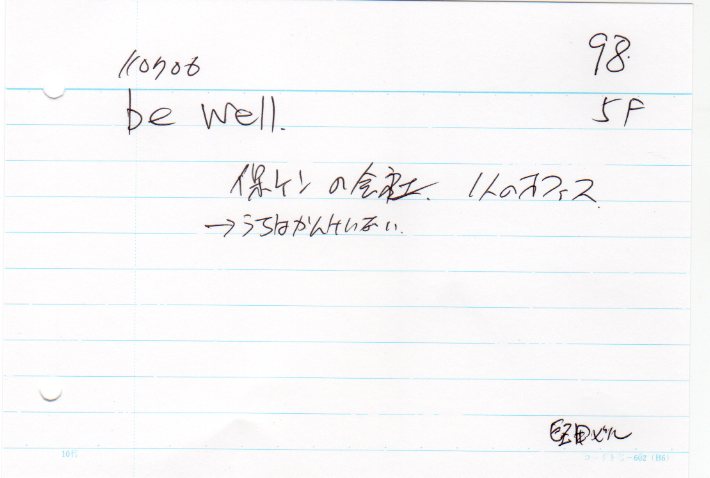 110706
98
be well.
5F
保ケンの会社. 1人のオフィス.
→うちはかんけいない.
堅田ビル
10行
コクヨ シ-602 (B6)